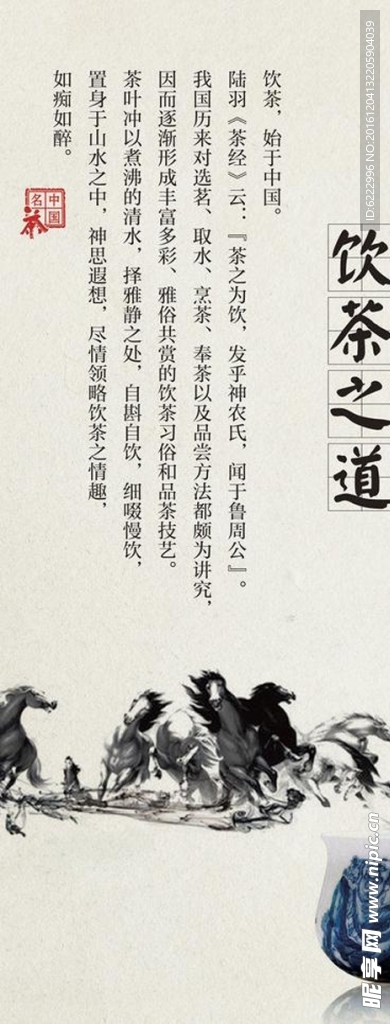 饮茶之道
饮茶，始于中国。
陆羽《茶经》云：『茶之为饮，发乎神农氏，闻于鲁周公』。
我国历来对选茗、取水、烹茶、奉茶以及品尝方法都颇为讲究，
因而逐渐形成丰富多彩、雅俗共赏的饮茶习俗和品茶技艺。
茶叶冲以煮沸的清水，择雅静之处，自斟自饮，细啜慢饮，
置身于山水之中，神思遐想，尽情领略饮茶之情趣，
如痴如醉。
中国
名茶
ID:6222996 NO:20161204132205904039
昵享网 www.nipic.cn